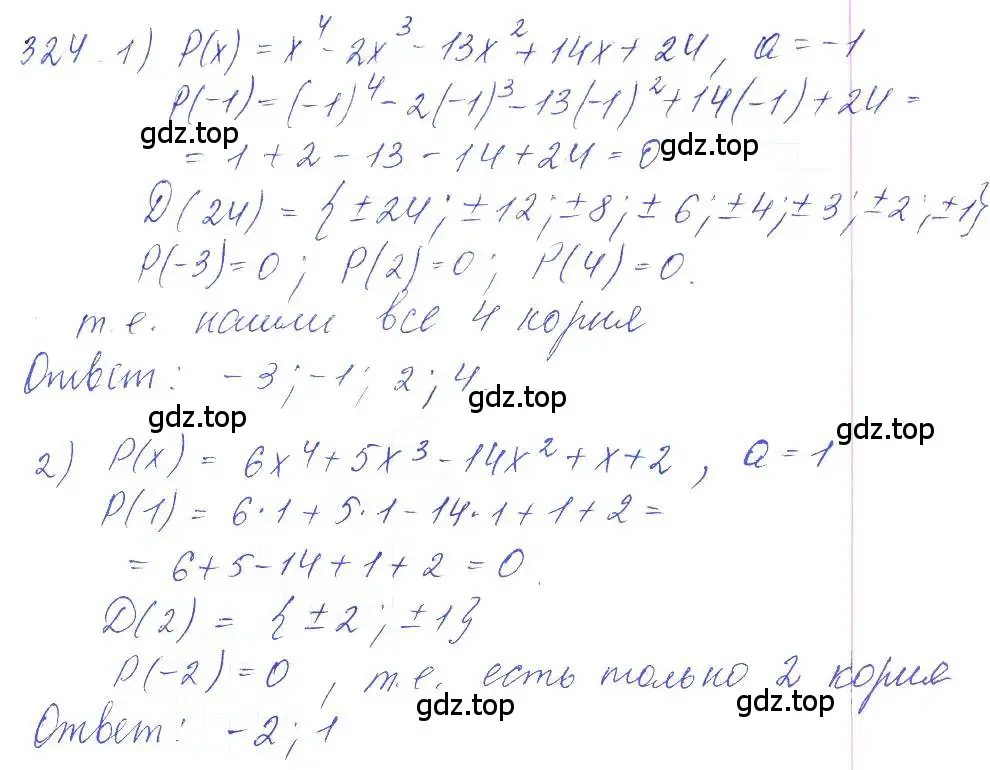 324. 1) P(x) = x⁴ - 2x³ - 13x² + 14x + 24, a = -1
P(-1) = (-1)⁴ - 2(-1)³ - 13(-1)² + 14(-1) + 24 =
gdz.top
gdz.top
= 1 + 2 - 13 - 14 + 24 = 0
D(24) = {±24; ±12; ±8; ±6; ±4; ±3; ±2; ±1}
P(-3) = 0; P(2) = 0; P(4) = 0.
т.е. нашли все 4 корня
Ответ: -3; -1; 2; 4.
gdz.top
gdz.top
gdz.top
2) P(x) = 6x⁴ + 5x³ - 14x² + x + 2, a = 1
P(1) = 6·1 + 5·1 - 14·1 + 1 + 2 =
= 6 + 5 - 14 + 1 + 2 = 0.
D(2) = {±2; ±1}
P(-2) = 0, т.е. есть только 2 корня
gdz.top
gdz.top
Ответ: -2; 1